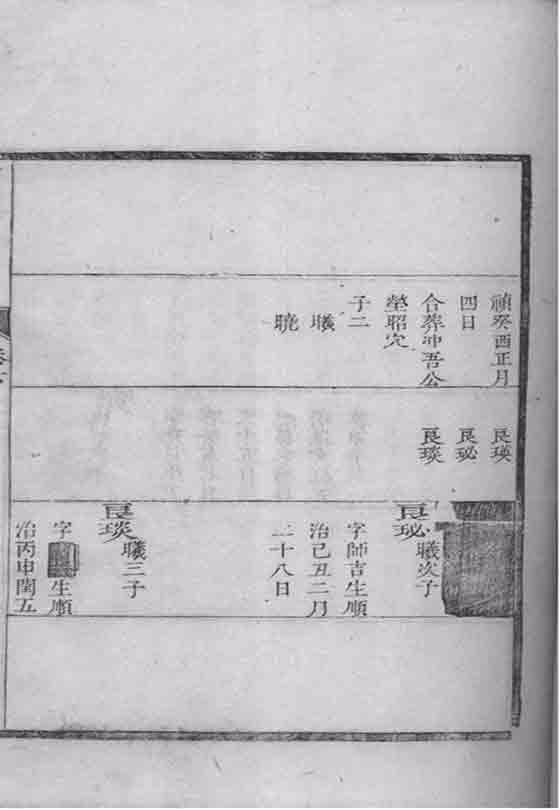 禎癸酉正月
四日
合葬冲吾公
塋昭穴
子二
曦
曉
良瑛
良珌
良琰
良珌
曦次子
字師吉生順
治己丑二月
二十八日
良琰
曦三子
字
生順
治丙申閏五